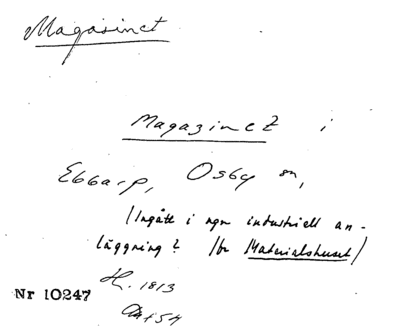 Magasinet
Magazinet i
Ebbarp, Osby sn,
(Ingått i ngn industriell an-
läggning? Jfr Materialshuset)
H. 1813
Nr 10247